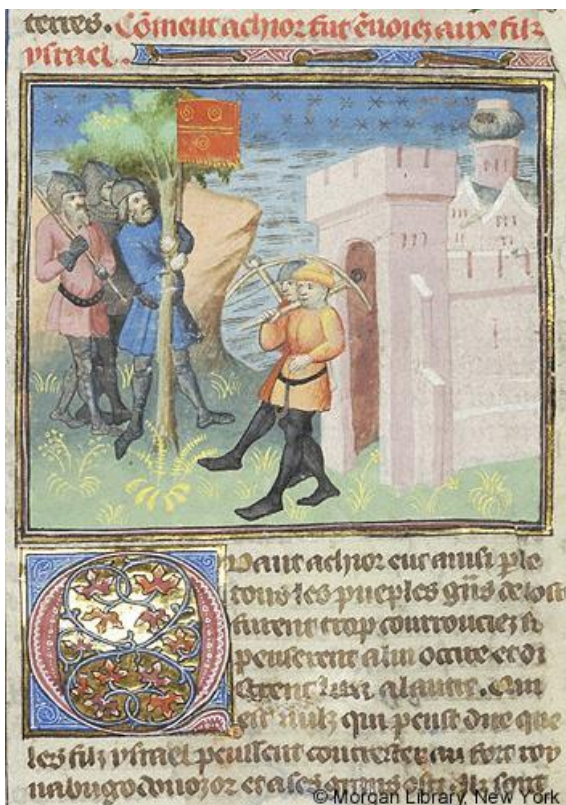 terres. Cōment achior fut ēuoiez aux filz
ysrael.
Quant achior eut ainsi ple
tous les pueples grīs de lost
furent trop courrouciez si
penserent a lui occire et di
rent lun a lautre. Qui
est nulz qui peust dire que
les filz ysrael peussent contrester au fort roy
nabugodonozor et a ses
© Morgan Library, New York